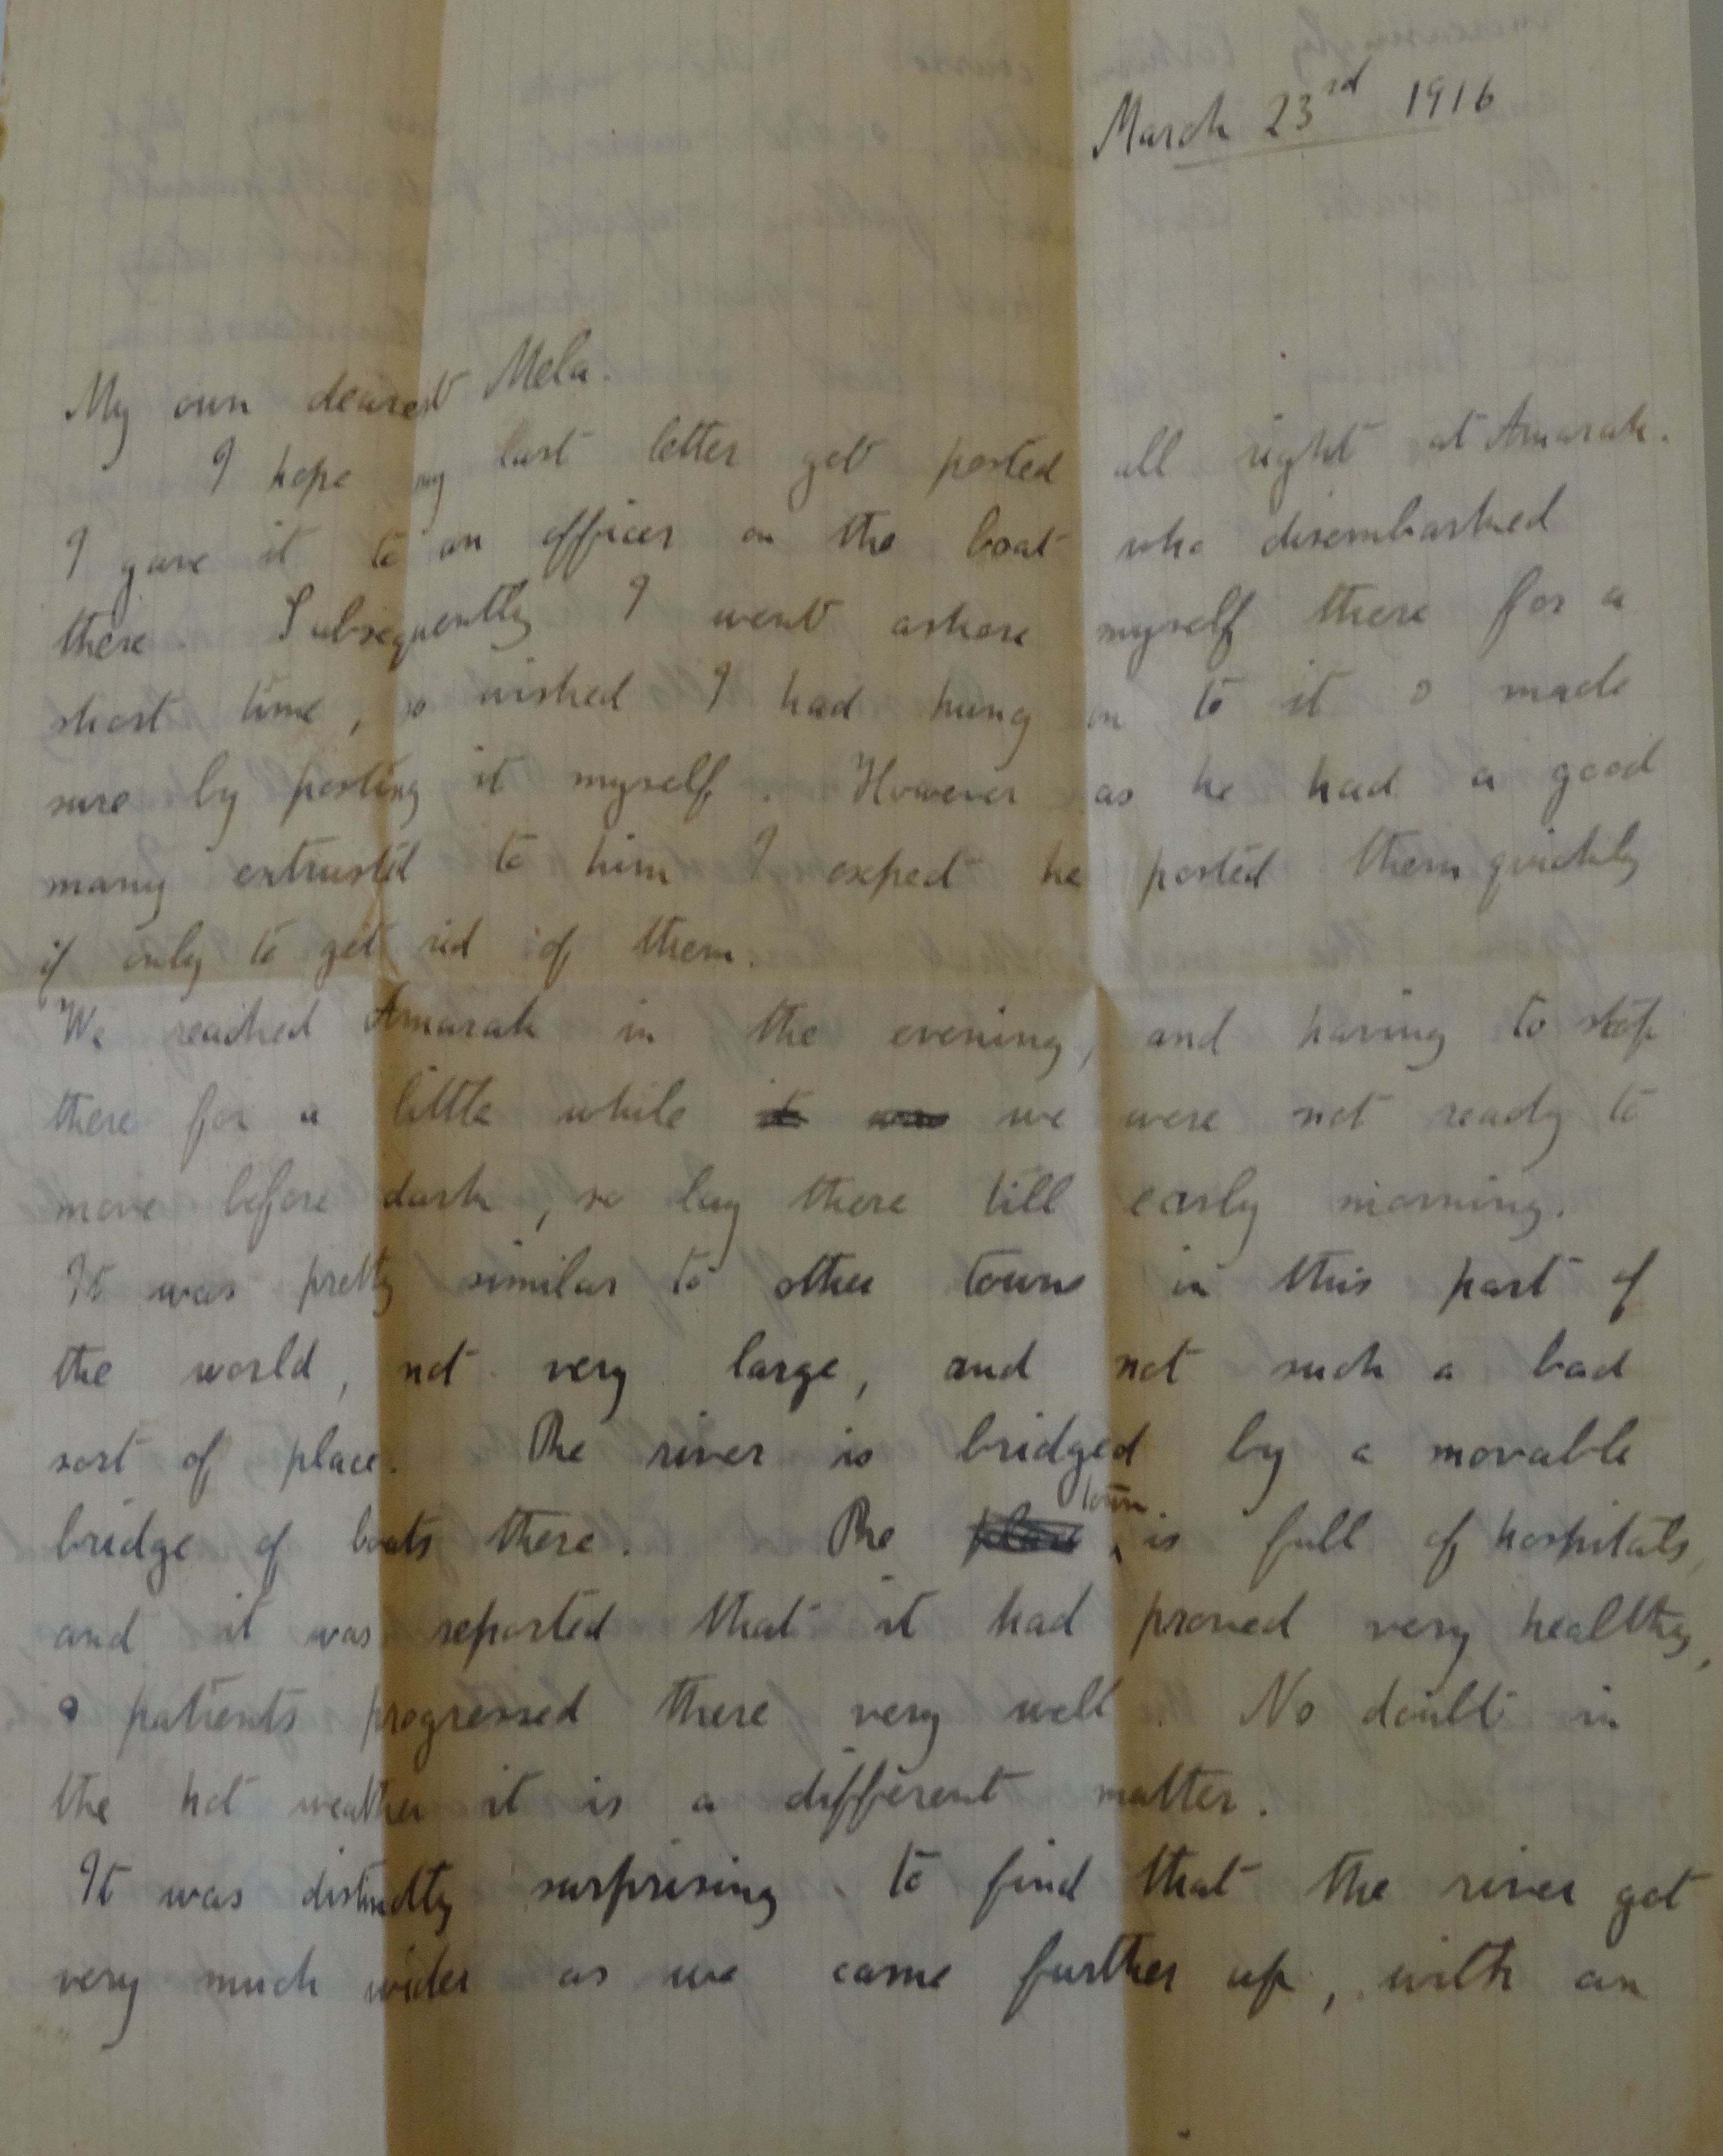 March 23rd 1916
My own dearest Mela.
I hope my last letter got posted all right at Amarah.
I gave it to an officer on the boat who disembarked
there. Subsequently I went ashore myself there for a
short time, so wished I had hung on to it & made
sure by posting it myself. However as he had a good
many entrusted to him I expect he posted them quickly
if only to get rid of them.
We reached Amarah in the evening, and having to stop
there for a little while it was we were not ready to
move before dark, so lay there till early morning.
It was pretty similar to other towns in this part of
the world, not very large, and not such a bad
sort of place. The river is bridged by a movable
bridge of boats there. The place town is full of hospitals,
and it was reported that it had proved very healthy,
& patients progressed there very well. No doubt in
the hot weather it is a different matter.
It was distinctly surprising to find that the river got
very much wider as we came further up, with an